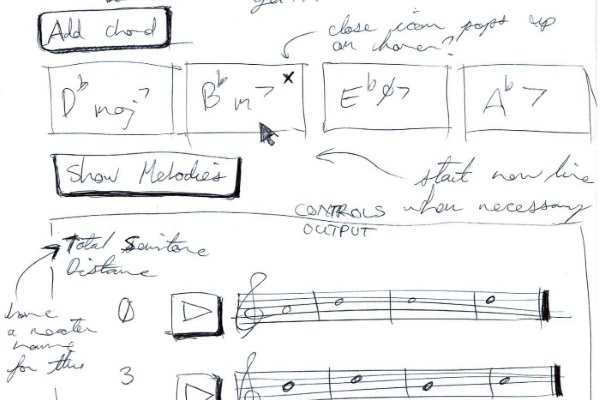 Add chord
close icon pops up
on hover?
D♭ maj7
B♭ m7
x
E♭ø7
A♭7
Show Melodies
start new line
when necessary
CONTROLS
OUTPUT
Total Semitone
Distance
have
a neater
name
for this
0
3